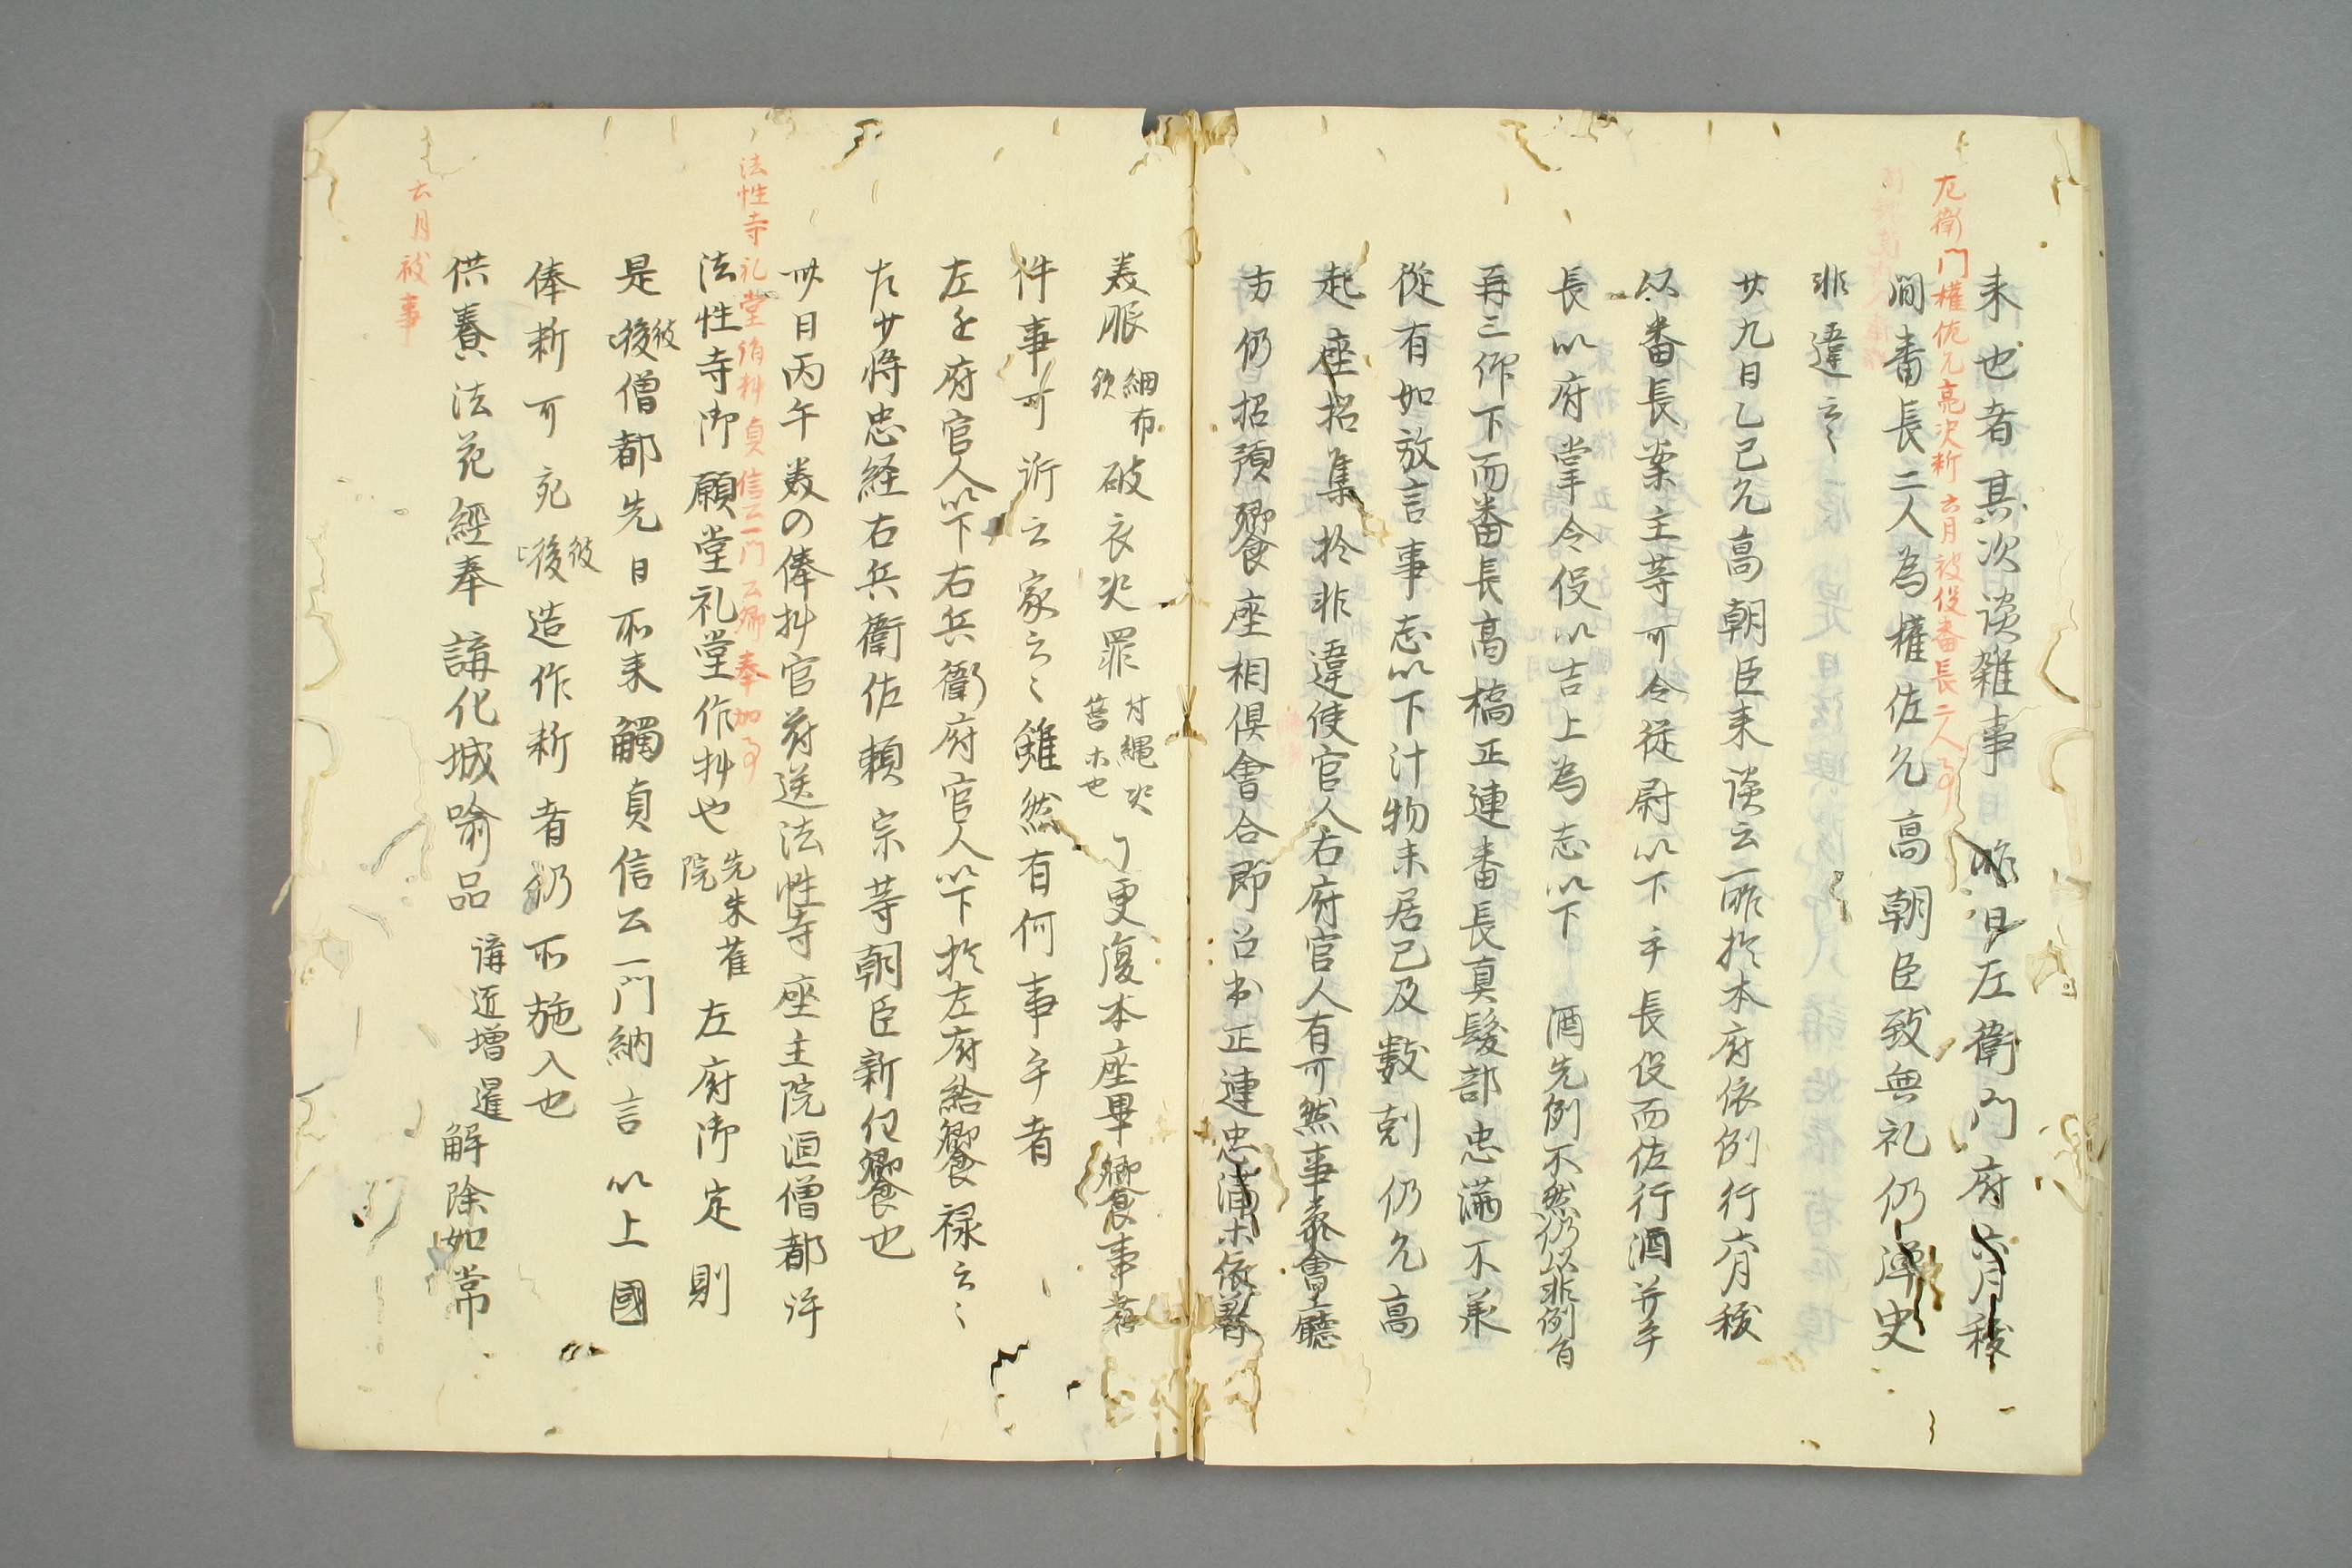 左衛門權佐允亮次新六月祓役番長二人事
来也者其次談雑事昨日左衛門府六月祓
間番長二人為權佐允高朝臣致無礼仍弾史
非違云〻
廿九日乙巳允高朝臣来談云一昨於本府依例行六月祓
以番長案主等可令従尉以下手長役而佐行酒并手
長以府掌令役以吉上為志以下 酒先例不然仍以非例旨
再三仰下而番長高橋正連番長真髪部忠満不承
從有如放言事志以下汁物未居已及數剋仍允高
起座招集於非違使官人右府官人有可然事参會廳
方仍招預饗座相倶會合即召出正連忠蒲木依尋
美服細布欤破衣次罪付縄次笞木也了更復本座畢饗食事者
件事可訴云家云〻雖然有何事乎者
左近府官人以下右兵衛府官人以下於左府給饗禄云〻
左少将忠経右兵衛佐頼宗等朝臣新任饗也
法性寺礼堂作料貞信公一門公卿奉加事
卅日丙午美の俸料官苻送法性寺座主院源僧都許
法性寺御願堂礼堂作料也先朱雀院左府御定則
是彼後僧都先日所来觸貞信公一門納言以上國
俸新可宛彼後造作新者仍所施入也
六月祓事
供養法花經奉講化城喩品講近増暹解除如常